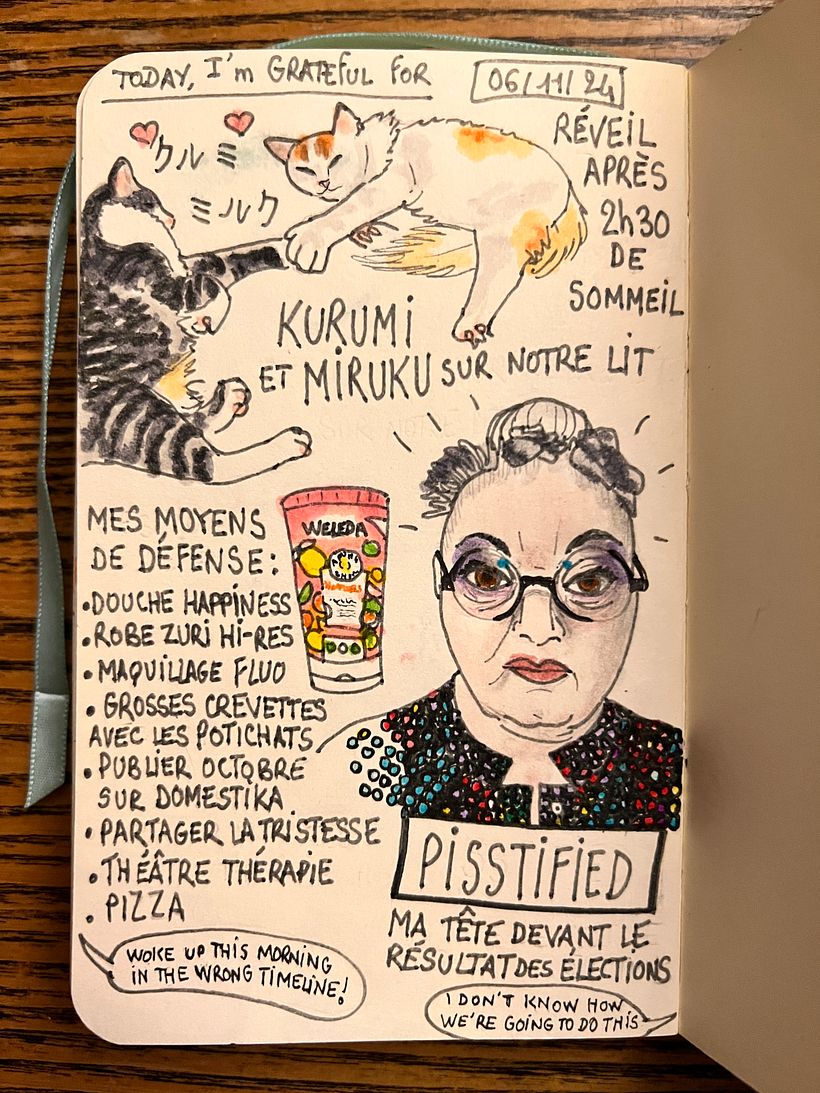 TODAY, I'm GRATEFUL FOR
06/11/24
クルミ
ミルク
RÉVEIL
APRÈS
2h30
DE
SOMMEIL
KURUMI
ET MIRUKU SUR NOTRE LIT
MES MOYENS
DE DÉFENSE:
•DOUCHE HAPPINESS
•ROBE ZURI HI-RES
•MAQUILLAGE FLUO
•GROSSES CREVETTES
AVEC LES POTICHATS
•PUBLIER OCTOBRE
SUR DOMESTIKA
•PARTAGER LA TRISTESSE
•THÉÂTRE THÉRAPIE
•PIZZA
WELEDA
WOKE UP THIS MORNING
IN THE WRONG TIMELINE!
PISSTIFIED
MA TÊTE DEVANT LE
RÉSULTAT DES ÉLECTIONS
I DON'T KNOW HOW
WE'RE GOING TO DO THIS